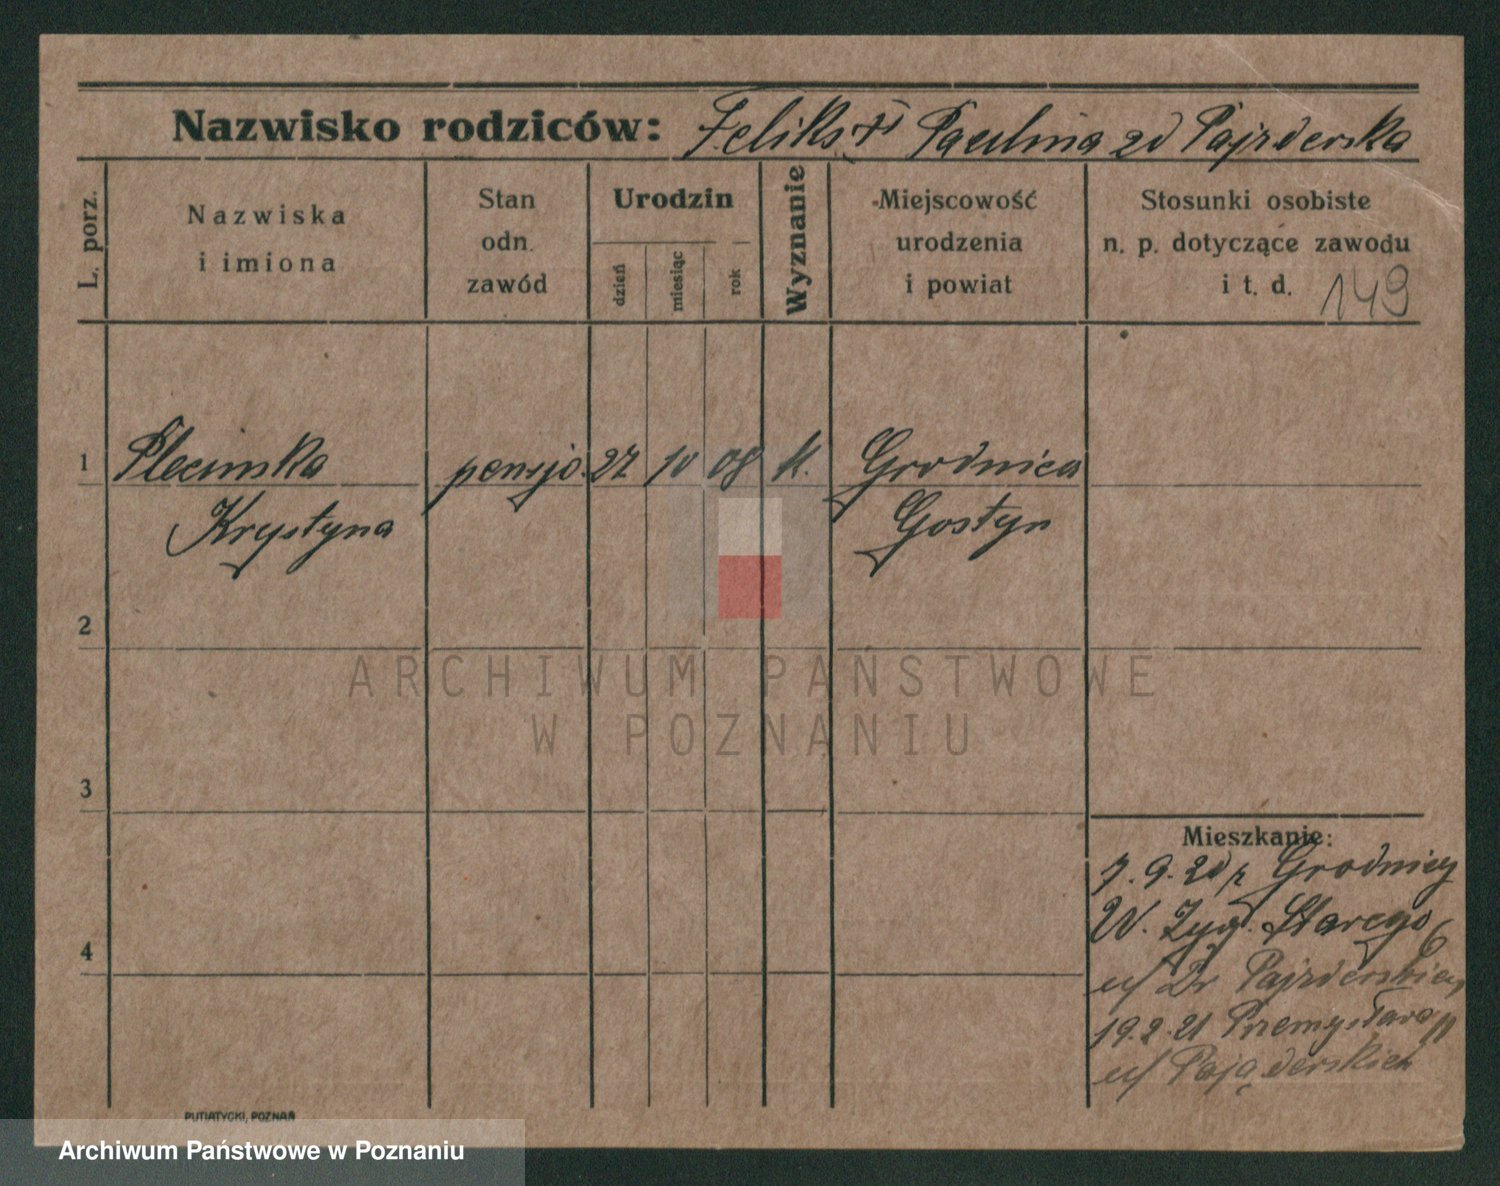 Nazwisko rodziców: Feliks + Paulina zd Pajzderska
L. porz.
Nazwiska
i imiona
Stan
odn.
zawód
Urodzin
dzień
miesiąc
rok
Wyznanie
Miejscowość
urodzenia
i powiat
Stosunki osobiste
n. p. dotyczące zawodu
i t. d. 149
1 Plecinska pensjo. 27 10 08 k. Grodnica
Krystyna Gostyn
2
3
4
Mieszkanie:
7.9.20 z Grodnicy
W. Zyg. Starego 6
u/ Dr Pajzderskiej
19.2.21 Przemysława
u/ Pajązderskich
PUTIATYCKI, POZNAŃ
ARCHIWUM PAŃSTWOWE
W POZNANIU
Archiwum Państwowe w Poznaniu